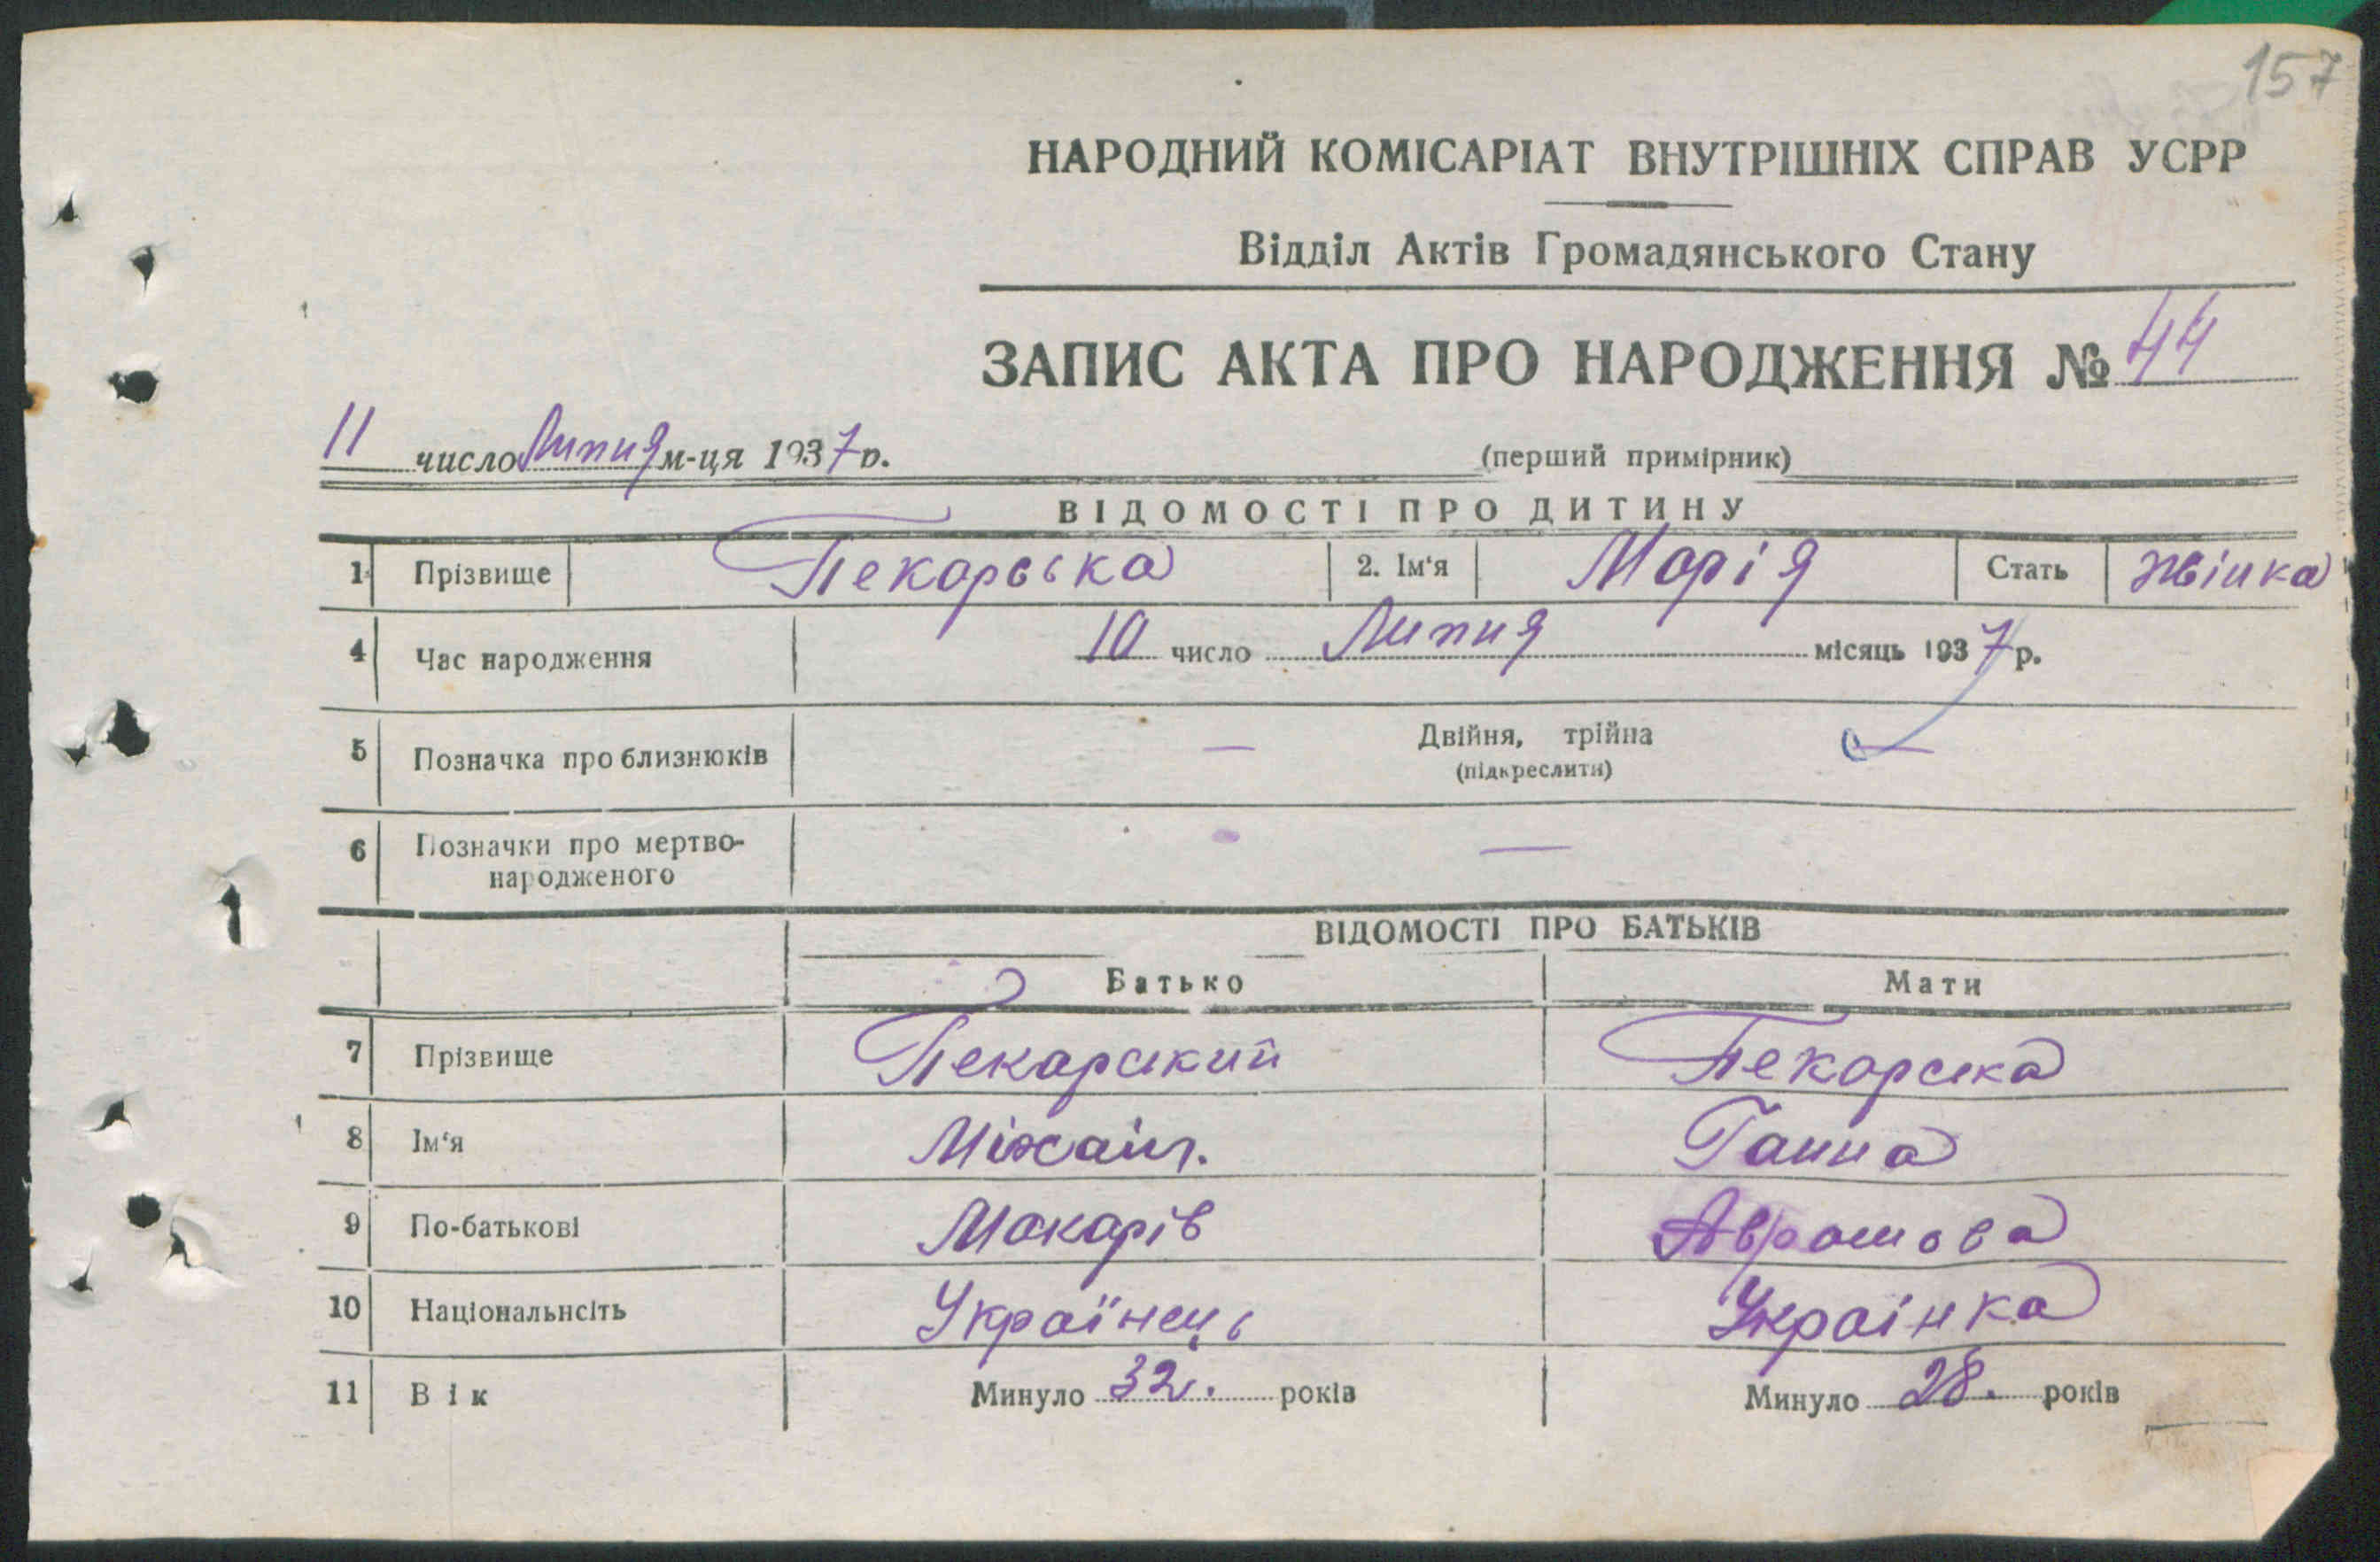 157
НАРОДНИЙ КОМІСАРІАТ ВНУТРІШНІХ СПРАВ УСРР
Відділ Актів Громадянського Стану
ЗАПИС АКТА ПРО НАРОДЖЕННЯ № 44
11 число Липня м-ця 1937 р.
(перший примірник)
ВІДОМОСТІ ПРО ДИТИНУ
1 Прізвище Пекарська 2. Ім'я Марія Стать жінка
4 Час народження 10 число Липня місяць 1937 р.
5 Позначка про близнюків — Двійня, трійна —
(підкреслити)
6 Позначки про мертво- —
народженого
ВІДОМОСТІ ПРО БАТЬКІВ
Батько Мати
7 Прізвище Пекарский Пекарска
8 Ім'я Міхаіл. Ганна
9 По-батькові Макарів Аврамова
10 Національнсіть Українець Украінка
11 Вік Минуло 32. років Минуло 28. років